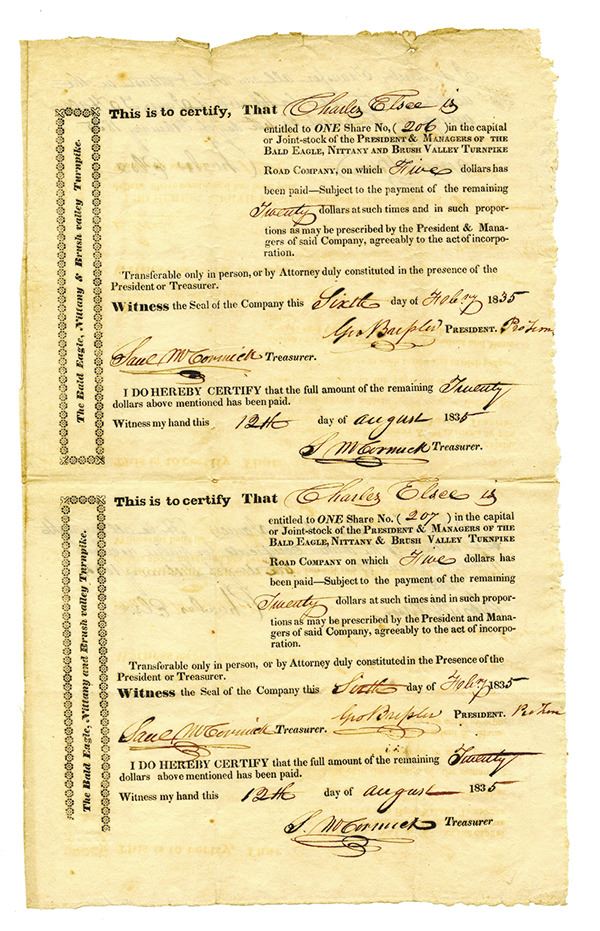 The Bald Eagle, Nittany & Brush valley Turnpike.
This is to certify, That Charles Elsee is
entitled to ONE Share No, ( 206 ) in the capital
or Joint-stock of the PRESIDENT & MANAGERS OF THE
BALD EAGLE, NITTANY AND BRUSH VALLEY TURNPIKE
ROAD COMPANY, on which Five dollars has
been paid—Subject to the payment of the remaining
Twenty dollars at such times and in such propor-
tions as may be prescribed by the President & Mana-
gers of said Company, agreeably to the act of incorpo-
ration.
Transferable only in person, or by Attorney duly constituted in the presence of the
President or Treasurer.
Witness the Seal of the Company this Sixth day of Feby 1835
Geo PRESIDENT. Pro Tem
Saul McCormick Treasurer.
I DO HEREBY CERTIFY that the full amount of the remaining Twenty
dollars above mentioned has been paid.
Witness my hand this 12th day of august 1835
S. McCormick Treasurer.
The Bald Eagle, Nittany and Brush valley Turnpike.
This is to certify That Charles Elsee is
entitled to ONE Share No. ( 207 ) in the capital
or Joint-stock of the PRESIDENT & MANAGERS OF THE
BALD EAGLE, NITTANY & BRUSH VALLEY TUKNPIKE
ROAD COMPANY on which Five dollars has
been paid—Subject to the payment of the remaining
Twenty dollars at such times and in such propor-
tions as may be prescribed by the President and Mana-
gers of said Company, agreeably to the act of incorpo-
ration.
Transferable only in person, or by Attorney duly constituted in the Presence of the
President or Treasurer.
Witness the Seal of the Company this Sixth day of Feby 1835
Geo PRESIDENT. Pro Tem
Saul McCormick Treasurer.
I DO HEREBY CERTIFY that the full amount of the remaining Twenty
dollars above mentioned has been paid.
Witness my hand this 12th day of august 1835
S. McCormick Treasurer